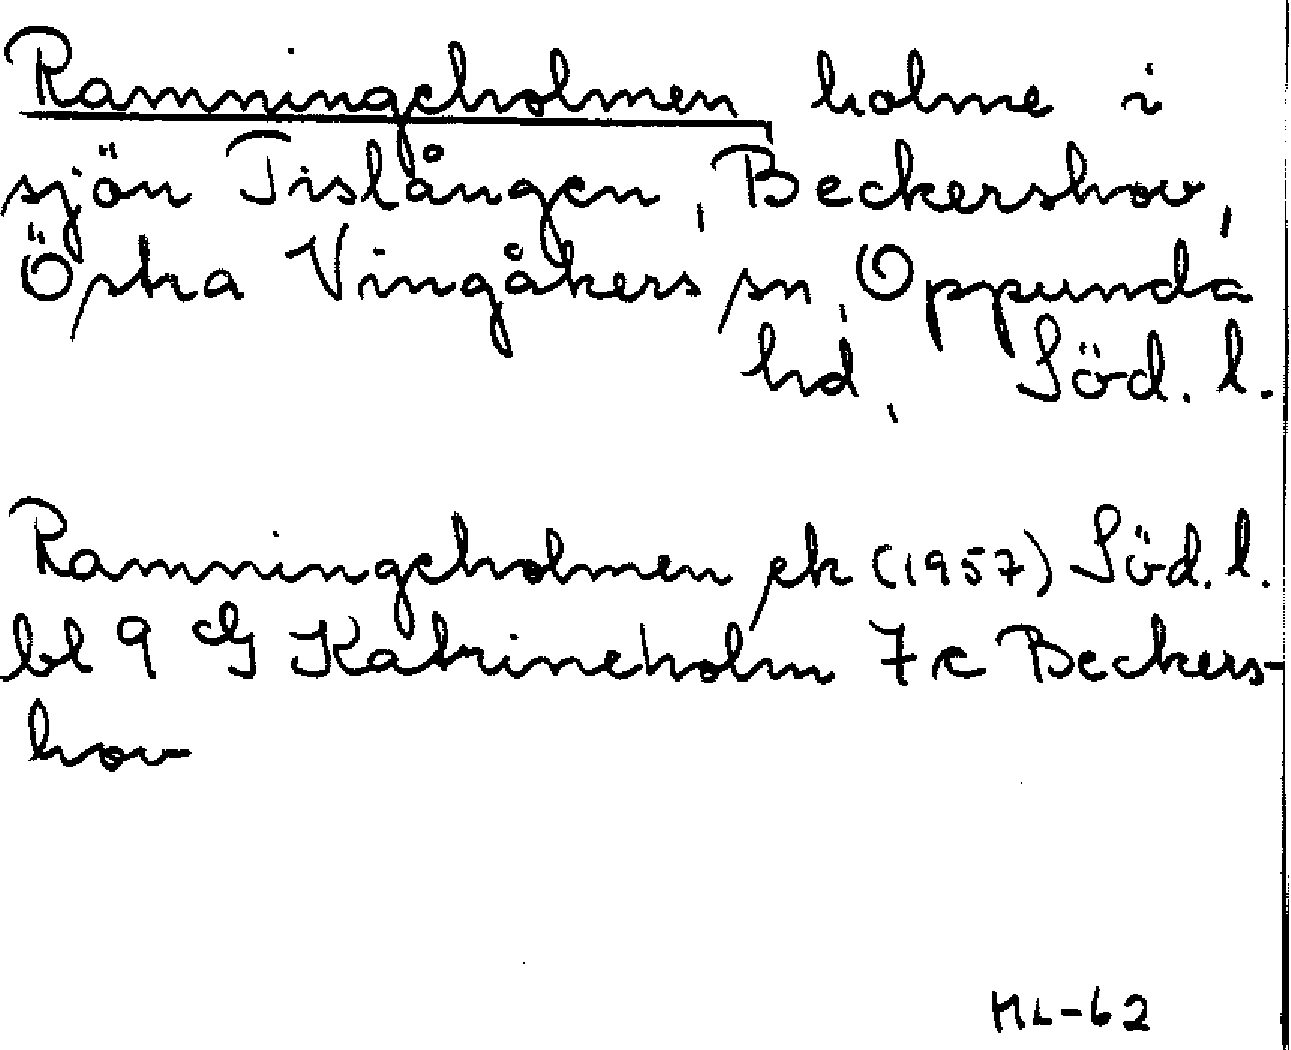 Ramningeholmen holme i
sjön Tislången, Beckershov,
Östra Vingåkers sn, Oppunda
hd, Söd. l.
Ramningeholmen ek (1957) Söd. l.
bl 9 G Katrineholm 7c Beckers-
hov
ML-62